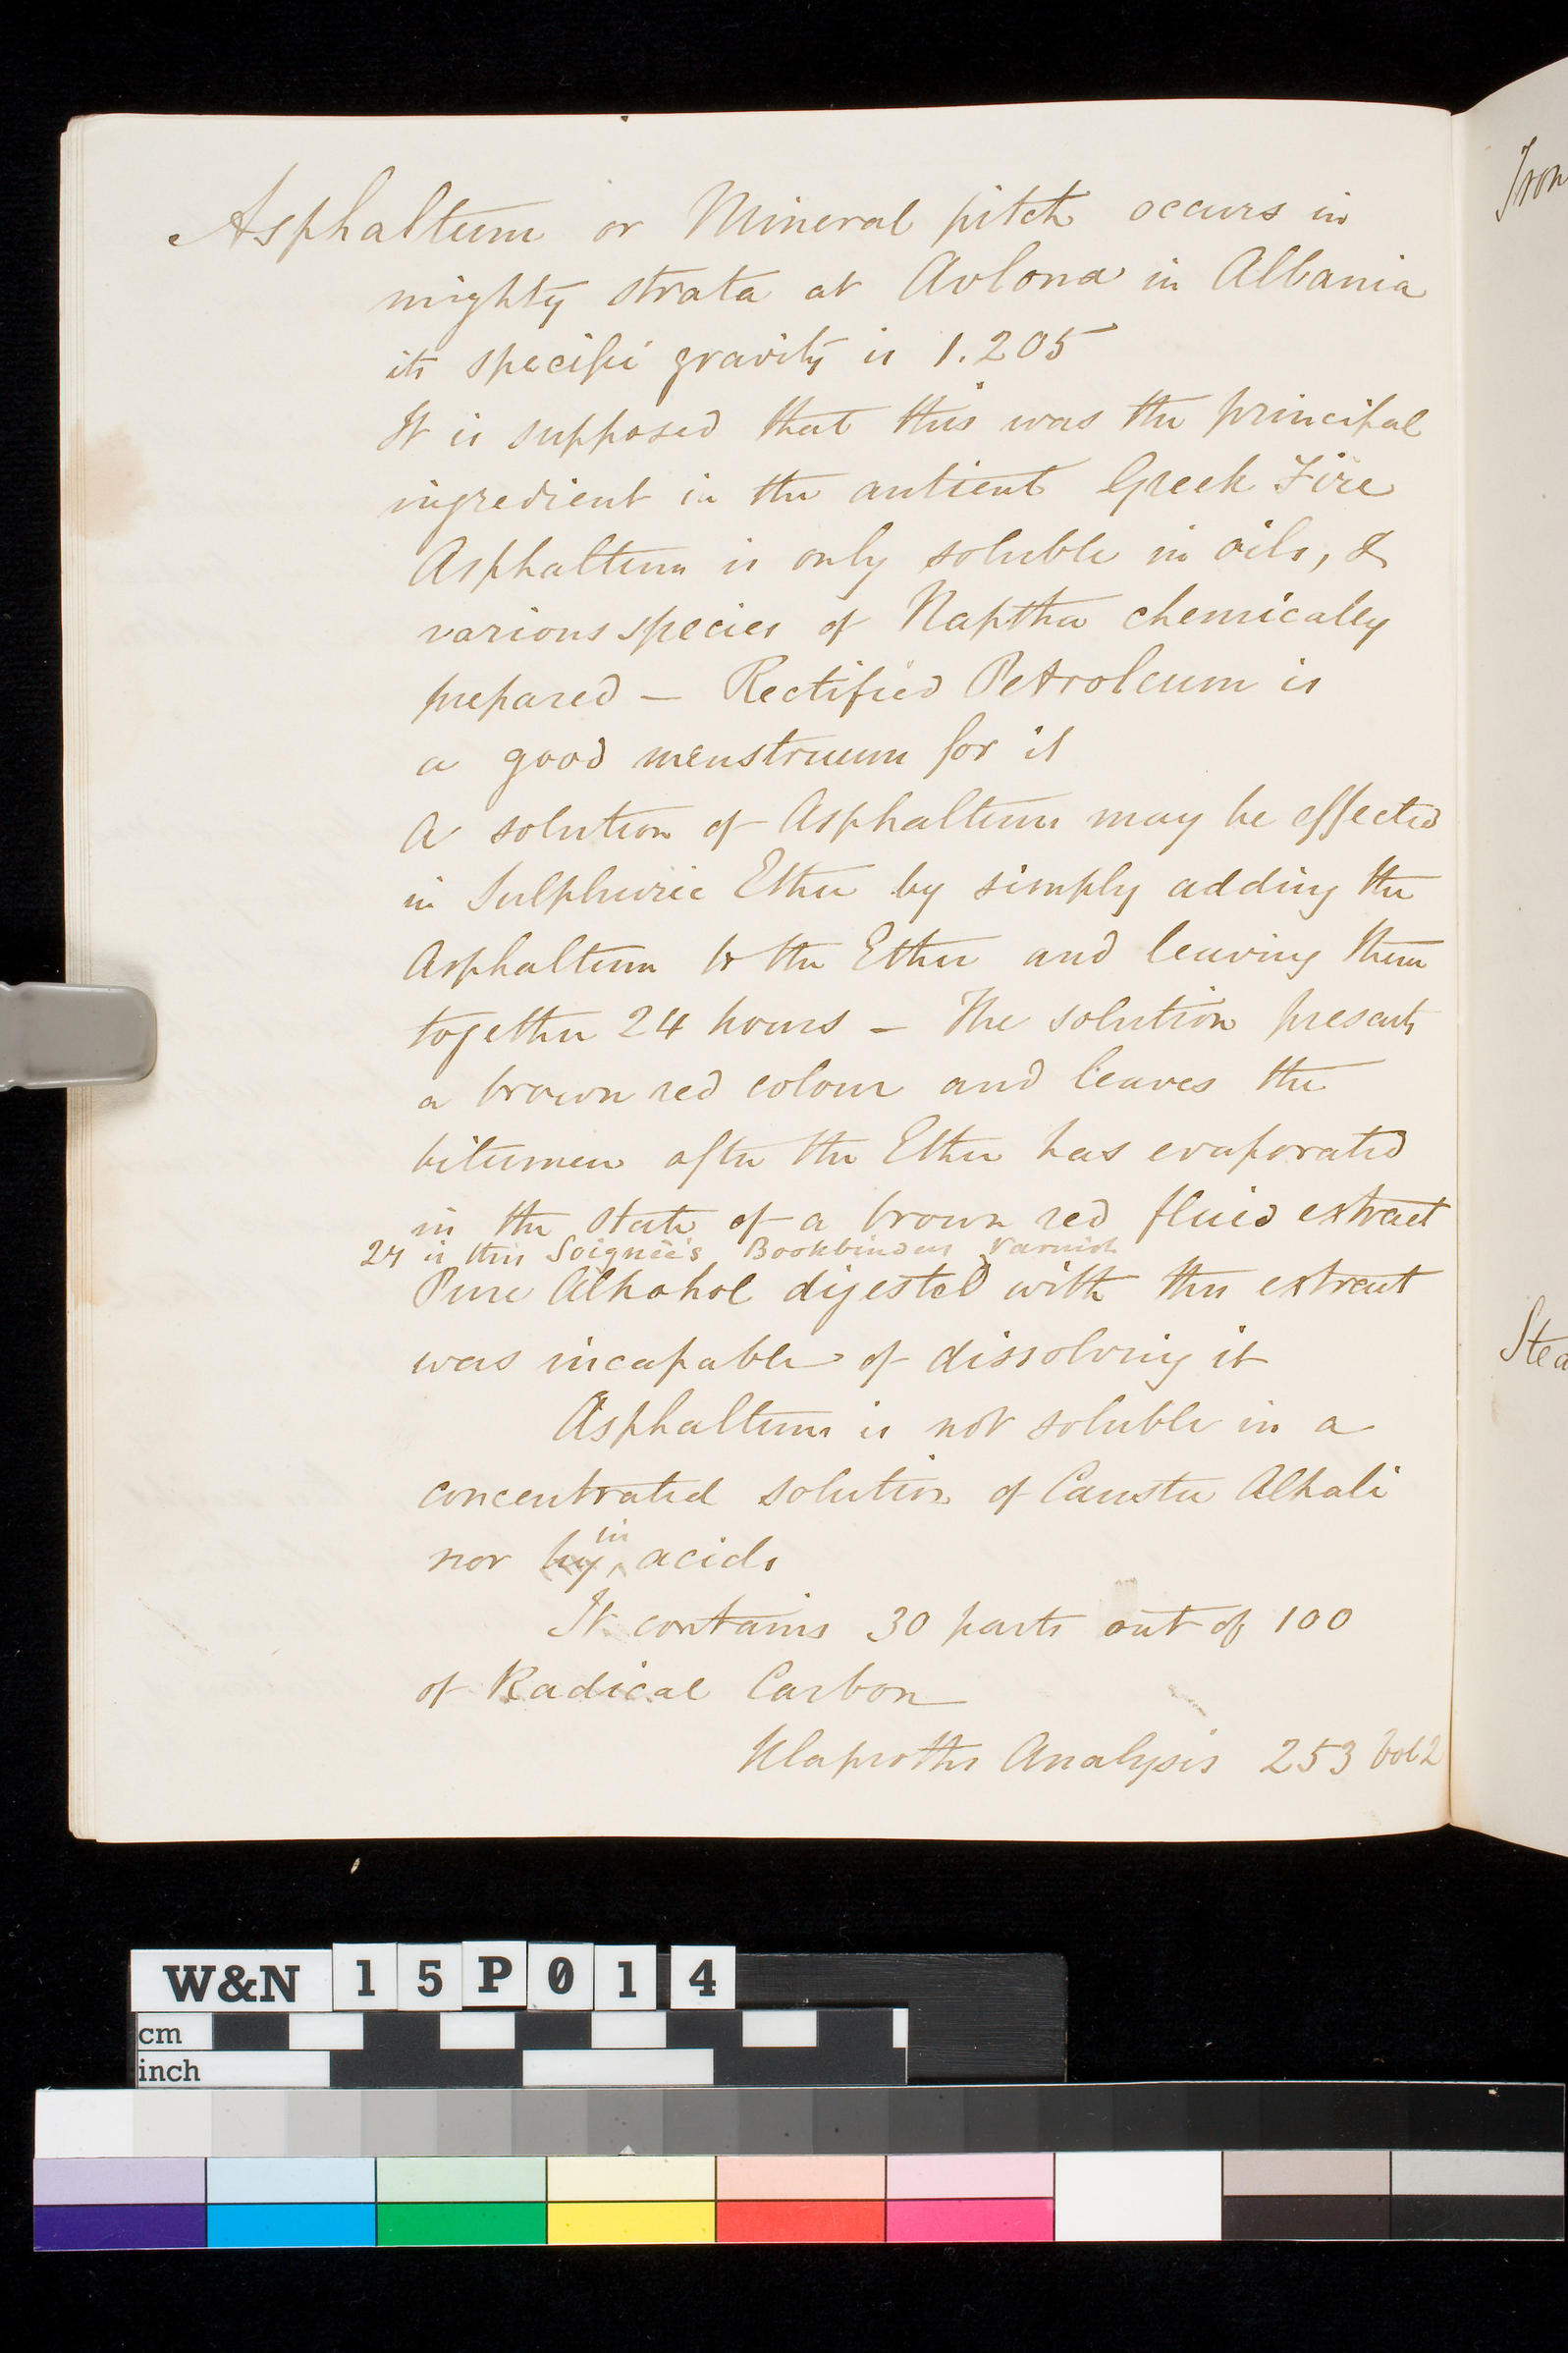 Asphaltum or Mineral pitch occurs in
mighty strata at Avlona in Albania
its specific gravity is 1.205
It is supposed that this was the principal
ingredient in the antient Greek Fire
Asphaltum is only soluble in oils, &
various species of Naptha chemically
prepared — Rectified Petroleum is
a good menstruum for it
A solution of Asphaltum may be effected
in Sulphuric Ether by simply adding the
Asphaltum to the Ether and leaving them
together 24 hours — The solution presents
a brown red colour and leaves the
bitumen after the Ether has evaporated
in the state of a brown red fluid extract
is this Soignèe's Bookbinders Varnish
Pure Alkohol digested with this extract
was incapable of dissolving it
Asphaltum is not soluble in a
concentrated solution of Caustic Alkali
nor by in acids
It contains 30 parts out of 100
of Radical Carbon
Klaproths Analysis 253 Vol 2
Iron
Stea
W&N 15P014
cm
inch